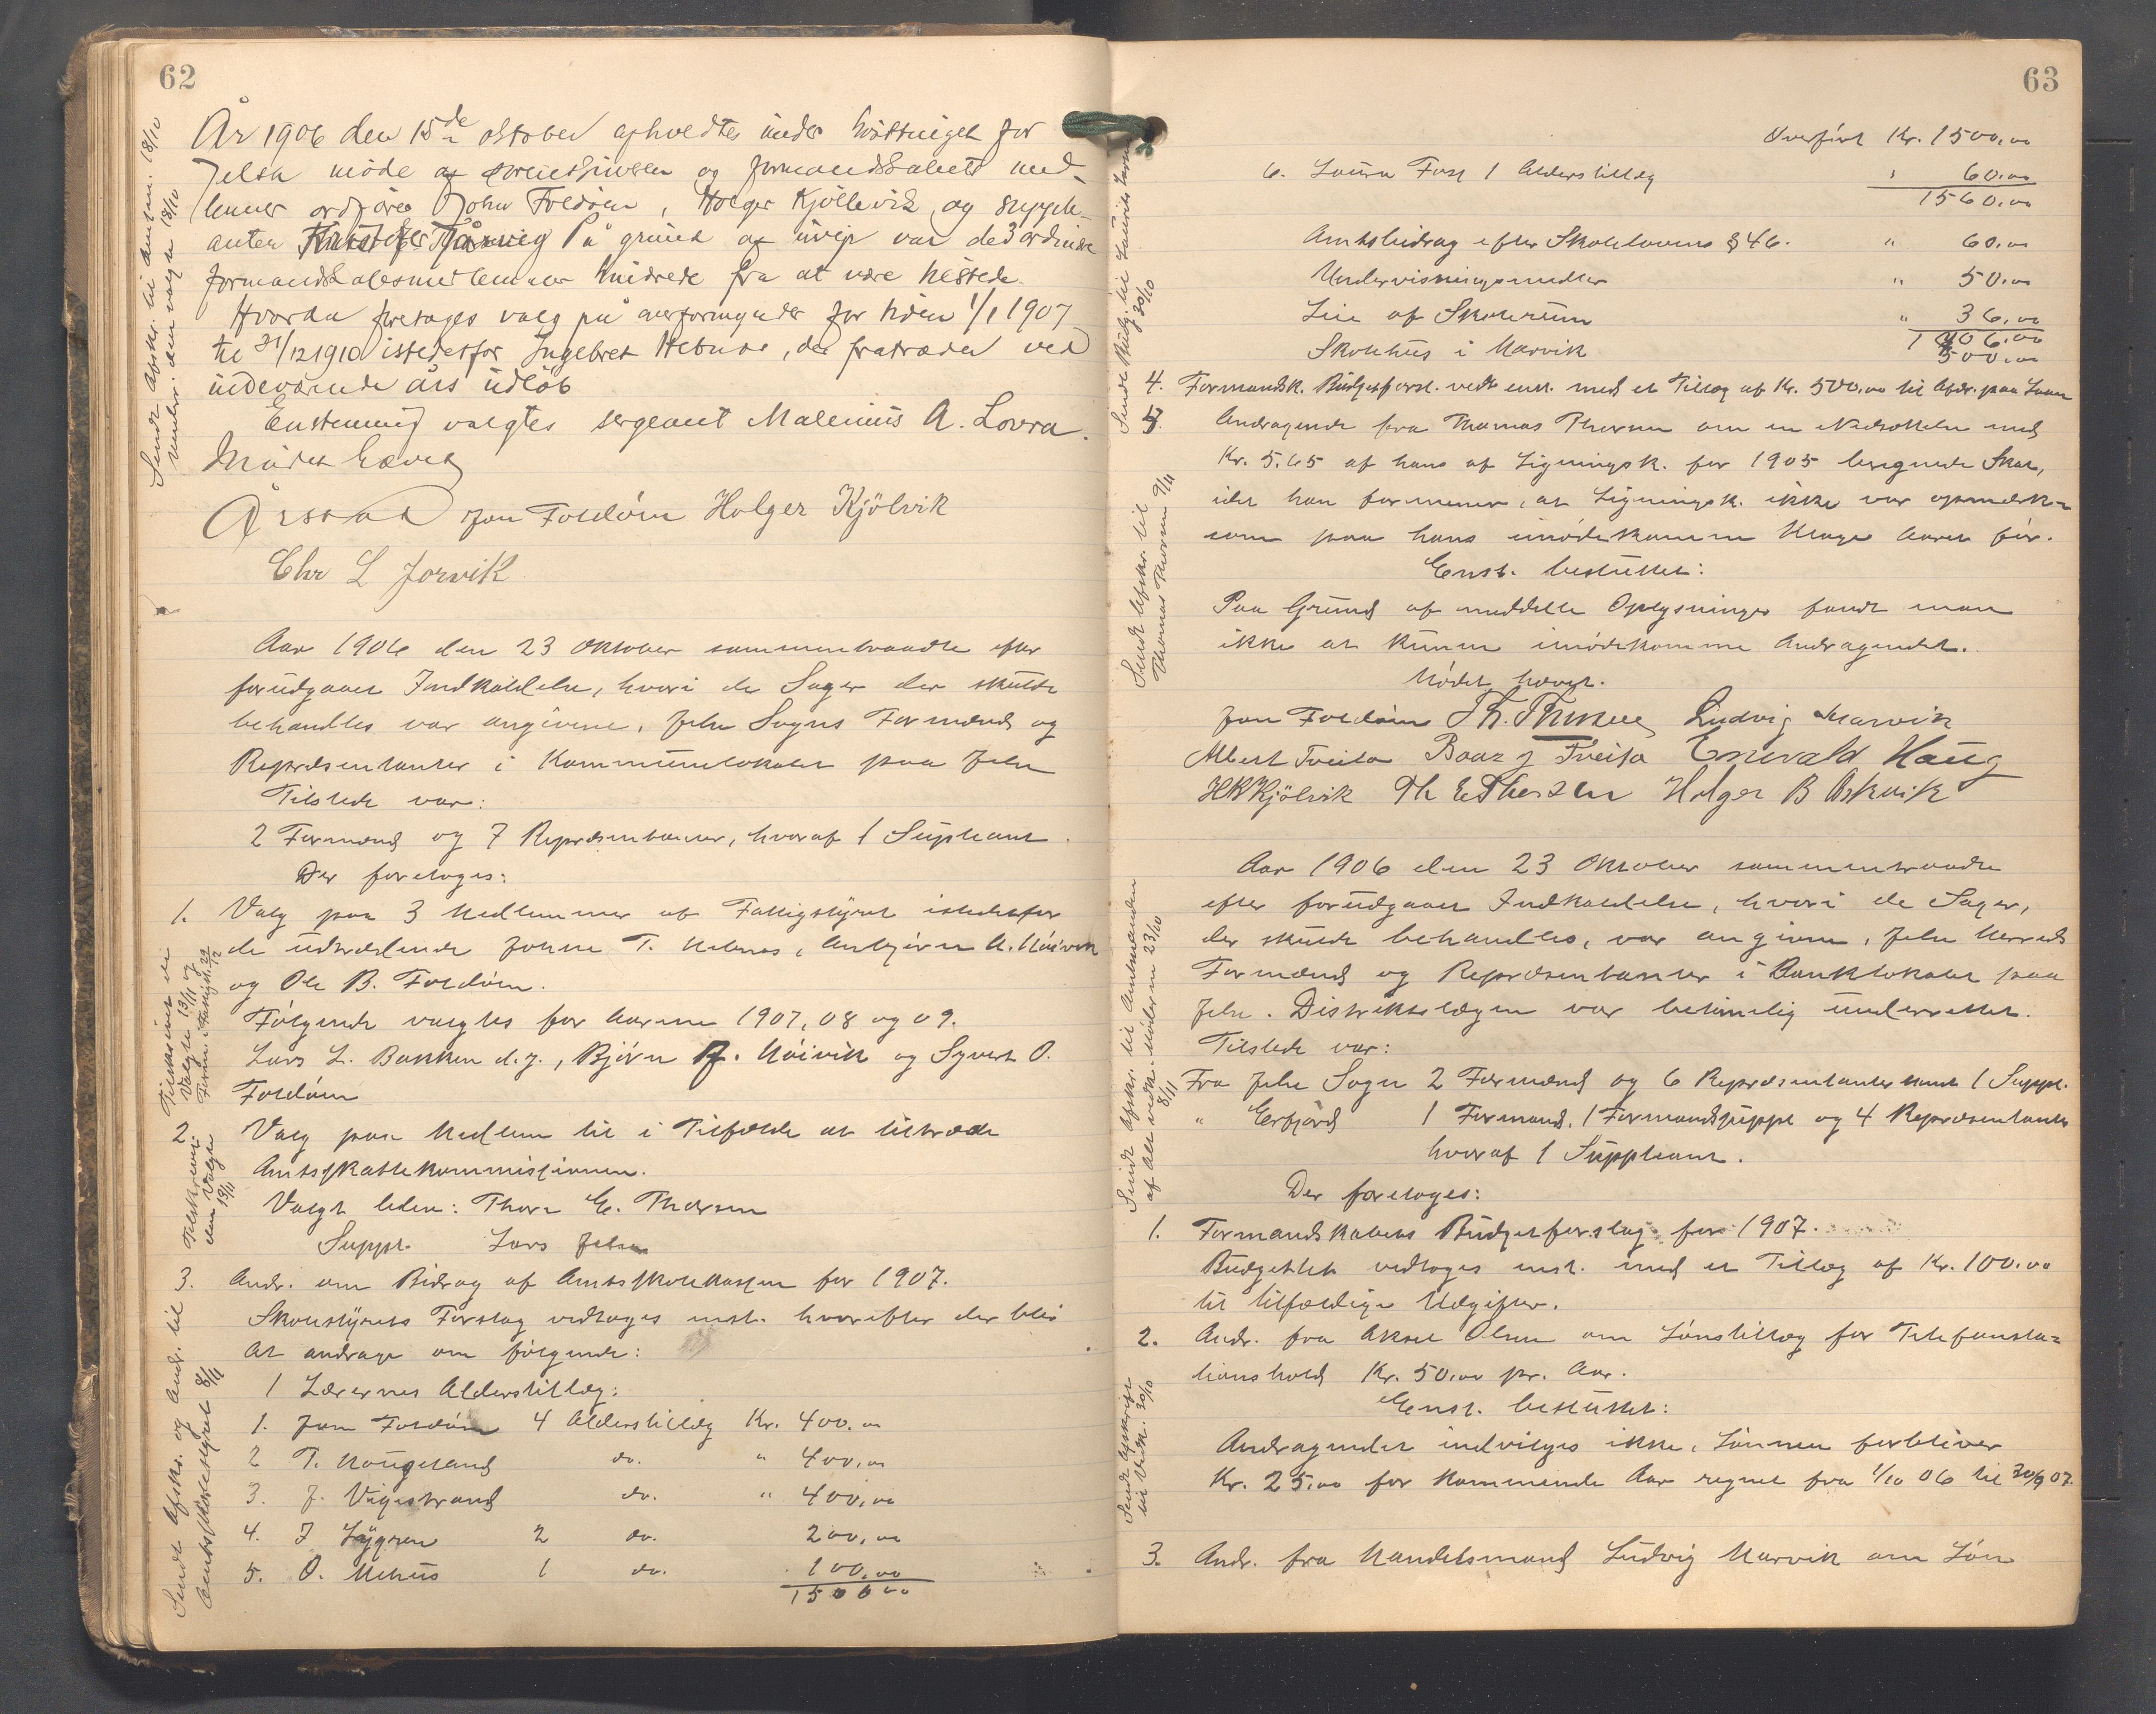 62
År 1906 den 15de oktober afholdtes under hösttinget for
Jelsa möde af sorenskriveren og formandskabets med-
lemmer ordförer John Foldöen, Holger Kjöllevik og supple-
anten På grund af uveir var de 3 ordinære
formandskabsmedlemmer hindrede fra at være tilstede.
Hvorda foretoges valg på overformynder for tiden 1/1 1907
til 31/12 1910 istedetfor Ingebret Hebnes, der fratræder ved
indeværende års udløb
Enstemmig valgtes sergeant Malenius A. Lovra.
Mödet hævet
Jon Foldöen Holger Kjölvik
Chr L Jorvik
Sendt afskr. til Amtm. 18/10
underr. den valgte 18/10
Aar 1906 den 23 Oktober sammentraadte efter
forudgaaet Indkaldelse, hvori de Sager der skulde
behandles var angivne, Jelse Sogns Formænd og
Repræsentanter i Kommunelokalet paa Jelse
Tilstede var:
2 Formænd og 7 Repræsentanter, hvoraf 1 Supleant.
Der foretoges:
1. Valg paa 3 Medlemmer af Fattigstyret istedetfor
de udtrædende Johne T. Hebnes, Anbjörn A. Höivik
og Ole B. Foldöen.
Fölgende valgtes for Aarene 1907, 08 og 09.
Lars L. Bakken d.y., Bjørn B. Höivik og Syvert O.
Foldöen
Tilskrevet de
Valgte 13/11 og
Form. i Fattigst. 29/12
2. Valg paa Medlem til i Tilfælde at tiltræde
Amtsskattekommissionen.
Valgt bleve: Thore E. Thorsen
Suppl. Lars Jelsa
Tilskrevet
den Valgte
13/11
3. Andr. om Bidrag af Amtsskolekassen for 1907.
Skolestyrets Forslag vedtoges enst. hvorefter der blir
at andrage om følgende:
1 Lærernes Alderstillæg:
1. Jon Foldöen 4 Alderstillæg Kr. 400.00
2 T. Haugeland do. " 400,00
3. J. Vigestrand do. " 400,00
4. I Lygren 2 do. 200,00
5. O. Mehus 1 do. 100,00
1500 00
Sendt Afskr. og Andr. til
Amtsskolestyret 8/11
63
Overfört Kr. 1500,00
6. Laura Foss 1 Alderstillæg " 60,00
1560,00
Amtsbidrag efter Skolelovens § 46. " 60,00
Undervisningsmidler " 50,00
Leie af Skolerum " 36,00
1706,00
Skolehus i Marvik 500,00
4. Formandsk. Budgetforsl. vedt. enst. med et Tillæg af Kr. 500,00 til Afdr. paa Laan
5. Andragende fra Thomas Thorsen om en Nedsættelse med
Kr. 5.65 af hans af Ligningsk. for 1905 beregnede Skat,
idet han formener, at Ligningsk. ikke var opmærk-
som paa hans imödekomne Klage Aaret för.
Enst. besluttet:
Paa Grund af meddelte Oplysninger fandt man
ikke at kunne imödekomme Andragendet.
Mödet hævet.
Jon Foldöen Th. Thorsen Ludvig Marvik
Albert Tveita Baar J Tveita Enevald Haug
HKKjölvik Th E Thorsen Holger B Askvik
Sendt Afskr. til
Thomas Thorsen 9/11
Aar 1906 den 23 Oktober sammentraadte
efter forudgaaet Indkaldelse, hvori de Sager,
der skulde behandles, var angivne, Jelse Herreds
Formænd og Repræsentanter i Banklokalet paa
Jelse. Distriktslægen var betimelig underrettet.
Tilstede var:
Fra Jelse Sogn 2 Formænd og 6 Repræsentanter samt 1 Suppl.
" Erfjord 1 Formand, 1 Formandssuppl og 4 Repræsentanter
hvoraf 1 Suppleant.
Der foretoges:
1. Formandskabets Budgetforslag for 1907.
Budgettet vedtoges enst. med et Tillæg af Kr. 100.00
til tilfældige Udgifter.
Sendt Afskr. til Amtmanden
af Mödern 23/10
8/11
2. Andr. fra Aksel Olsen om Lönstillæg for Telefonsta-
tionshold Kr. 50,00 pr. Aar.
Enst. besluttet:
Andragendet indvilges ikke, Lönnen forbliver
Kr. 25,00 for kommende Aar regnet fra 1/10 06 til 30/9 07.
Sendt Afskrift
til Vedk. 30/10
3. Andr. fra Handelsmand Ludvig Marvik om Lön